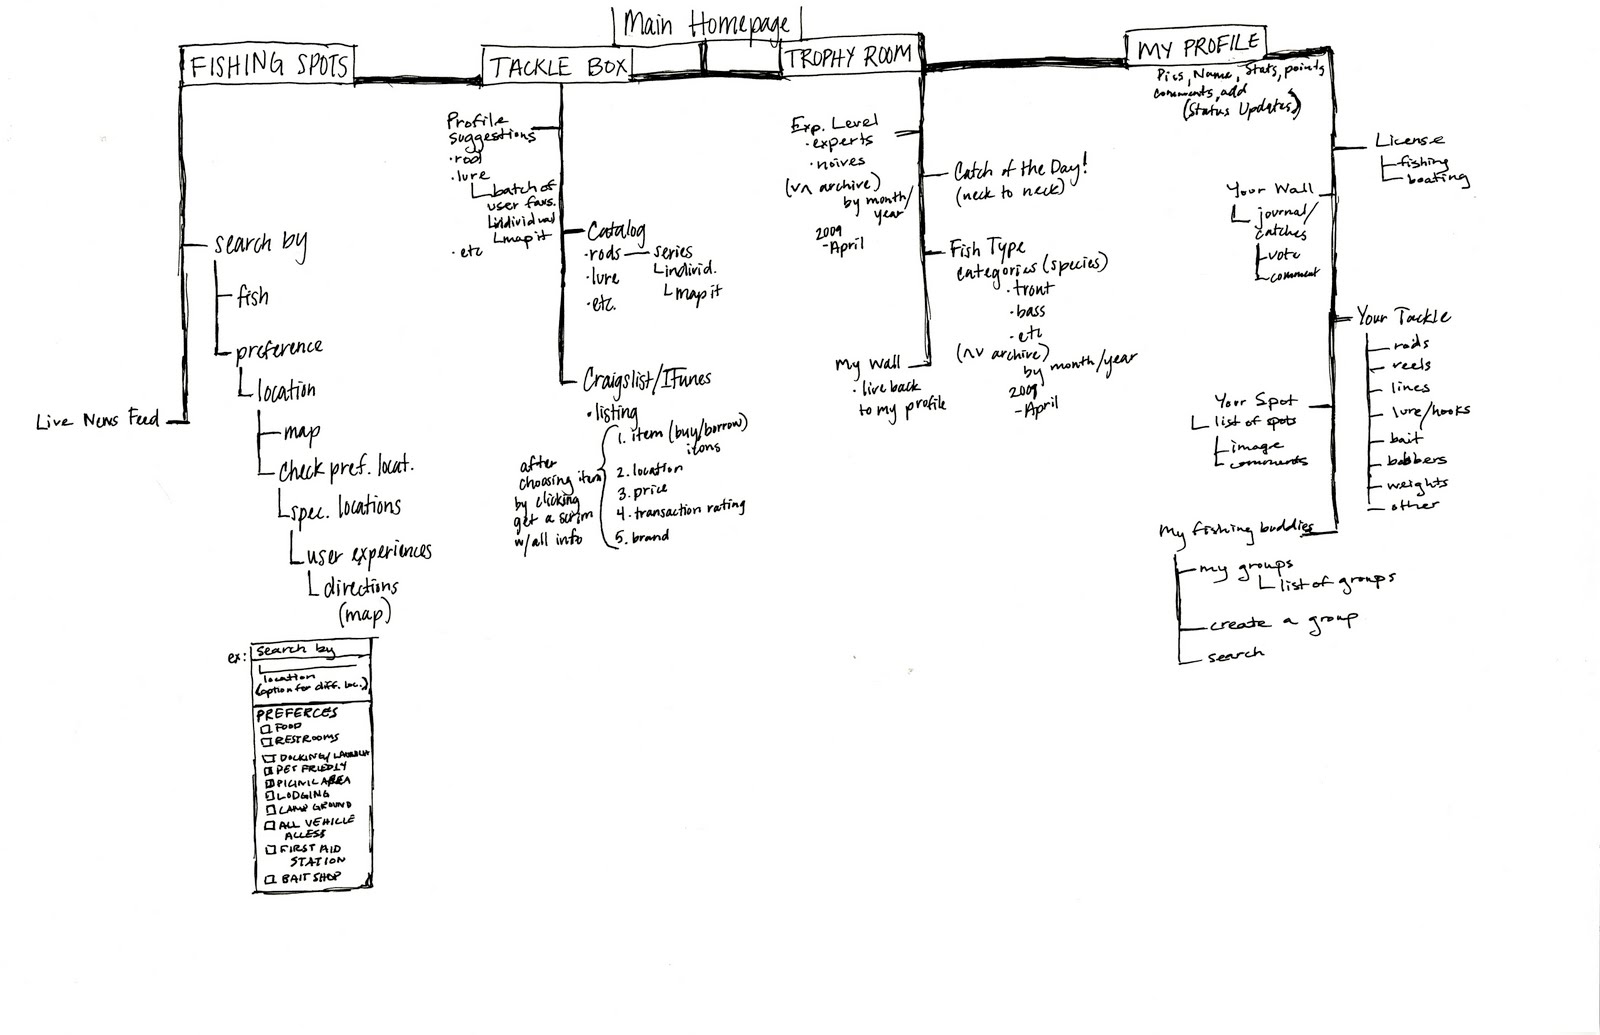 Main Homepage
FISHING SPOTS
search by
fish
preference
location
map
check pref. locat.
spec. locations
user experiences
directions
(map)
Live News Feed
ex:
search by
location
(option for diff. loc.)
PREFERCES
FOOD
RESTROOMS
DOCKING/LAUNCH
PET FRIEDLY
PICINIC AREA
LODGING
CAMP GROUND
ALL VEHICLE
ACCESS
FIRST AID
STATION
BAIT SHOP
TACKLE BOX
Profile
suggestions
·rod
·lure
batch of
user favs.
individual
map it
·etc
Catalog
·rods — series
individ.
map it
·lure
·etc.
Craigslist/ITunes
·listing
1. item (buy/borrow)
itons
2. location
3. price
4. transaction rating
5. brand
after
choosing item
by clicking
get a scrim
w/all info
TROPHY ROOM
Exp. Level
·experts
·noives
archive)
by month/
year
2009
-April
Catch of the Day!
(neck to neck)
Fish Type
categories (species)
·trout
·bass
·etc
archive)
by month/year
2009
-April
My Wall
·live back
to my profile
MY PROFILE
Pics, Name, Stats, points
comments, add
(Status Updates)
License
fishing
boating
Your Wall
journal/
catches
vote
comment
Your Tackle
rods
reels
lines
lure/hooks
bait
bobbers
weights
other
Your Spot
list of spots
image
comments
My fishing buddies
my groups
list of groups
create a group
search